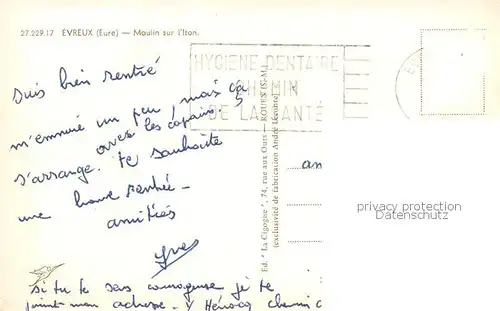 27.229.17 EVREUX (Eure) — Moulin sur l'Iton.
HYGIENE DENTAIRE
CHEMIN
DE LA SANTÉ
suis bien rentré
m'ennuie un peu, mais ça
s'arrange avec les copains.
te souhaite
une bonne rentrée —
amitiés
Yves
si tu te sens courageuse je te
joint mon adresse - Y Hénocq chemin
Ed. " La Cigogne ", 74, rue aux Ours — ROUEN (S.-M.)
(exclusivité de fabrication André Leconte)
privacy protection
Datenschutz